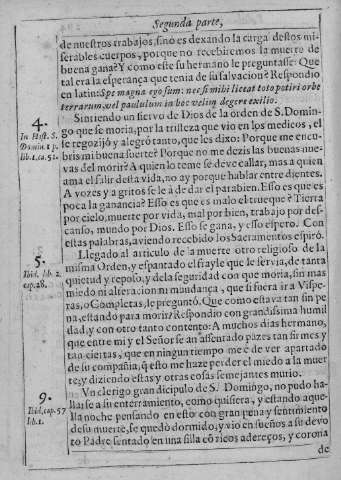 Segunda parte,
de nuestros trabajos, sino es dexando la carga destos mi-
serables cuerpos, porque no recebiremos la muerte de
buena gana? Y como este su hermano le preguntasse: Que
tal era la esperança que tenia de su salvacion? Respondio
en latin: Spe magna ego sum: nec si mihi liceat toto potiri orbe
terrarum, vel paululum in hoc velim degere exilio.
4.
In Hist. S.
Domin. 1 p.
lib. 1. ca. 51.
Sintiendo un siervo de Dios de la orden de S. Domin-
go que se moria, por la tristeza que vio en los medicos, el
se regozijò y alegrò tanto, que les dixo: Porque me encu-
bris mi buena suerte? Porque no me dezis las buenas nue-
vas del morir? A quien lo teme se deve callar, mas a quien
ama el salir desta vida, no ay porque hablar entre dientes.
A vozes y a gritos se le à de dar el parabien. Esso es que es
poca la ganancia? Esso es que es malo el trueque? Tierra
por cielo, muerte por vida, mal por bien, trabajo por des-
canso, mundo por Dios. Esso se gana, y esso espero. Con
estas palabras, aviendo recebido los Sacramentos espirò.
5.
Ibid. lib. 2.
cap. 28.
Llegado al articulo de la muerte otro religioso de la
misma Orden, y espantado el frayle que le servia, de tanta
quietud y reposo, y de la seguridad con que moria, sin mas
miedo ni alteracion ni mudança, que si fuera ir a Vispe-
ras, o Completas, le preguntò. Que como estava tan sin pe
na, estando para morir? Respondio con grandissima humil
dad, y con otro tanto contento: A muchos dias hermano,
que entre mi y el Señor se an assentado pazes tan firmes y
tan ciertas, que en ningun tiempo me è de ver apartado
de su compañia, q̃ esto me haze perder el miedo a la muer
te, y diziendo estas y otras cosas semejantes murio.
9.
Ibid. cap. 57
lib. 1.
Vn clerigo gran dicipulo de S. Domingo, no pudo ha-
llarse a su enterramiento, como quisiera, y estando aque-
lla noche pensando en esto con gran pena y sentimiento
de su muerte, se quedò dormido, y vio en sueños a su devo
to Padre sentado en una silla cõ ricos adereços, y corona
de